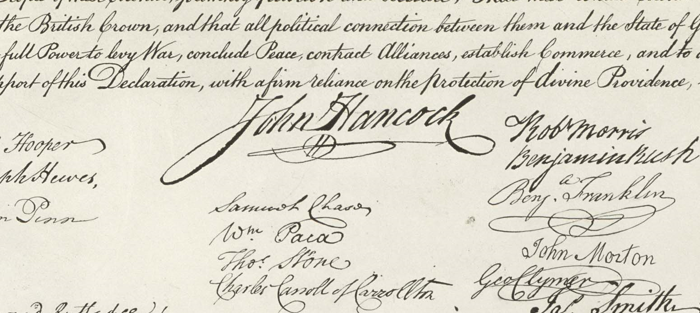 the British Crown, and that all political connection between them and the State of G
full Power to levy War, conclude Peace, contract Alliances, establish Commerce, and to
pport of this Declaration, with a firm reliance on the protection of divine Providence,
John Hancock
Hooper
ph Hewes,
Penn
Samuel Chase
Wm Paca
Thos. Stone
Charles Carroll of Carrollton
Robt Morris
Benjamin Rush
Benja. Franklin
John Morton
Geo Clymer
Jas. Smith